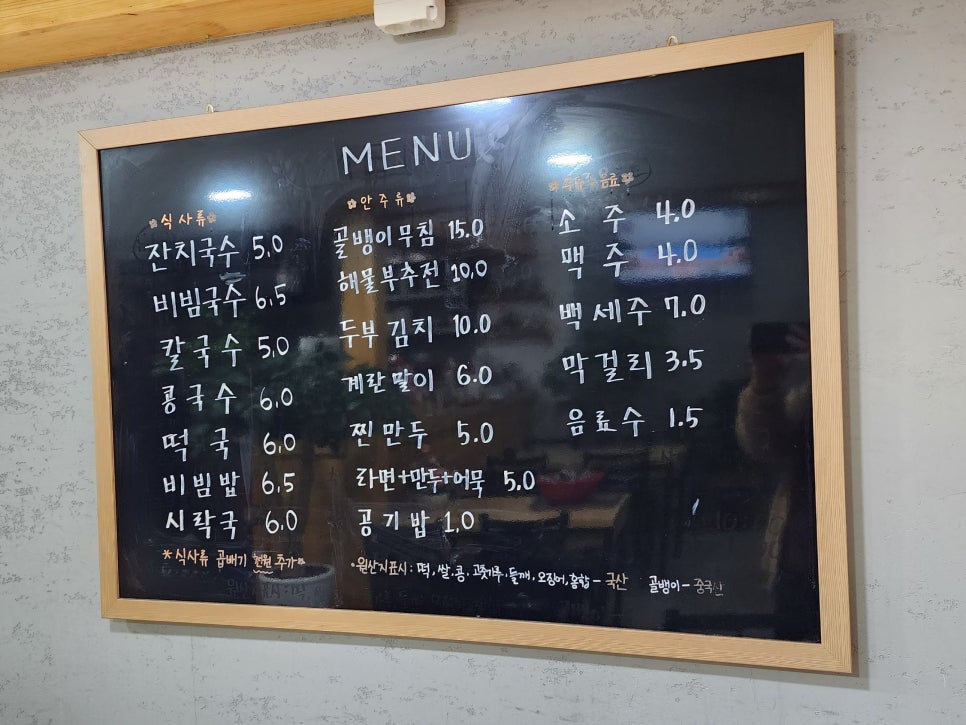 MENU
식사류
잔치국수 5.0
비빔국수 6.5
칼국수 5.0
콩국수 6.0
떡국 6.0
비빔밥 6.5
시락국 6.0
*식사류 곱배기 천원 추가
안주류
골뱅이무침 15.0
해물부추전 10.0
두부김치 10.0
계란말이 6.0
찐만두 5.0
라면+만두+어묵 5.0
공기밥 1.0
음료
소주 4.0
맥주 4.0
백세주 7.0
막걸리 3.5
음료수 1.5
·원산지표시: 떡, 쌀, 콩, 고춧가루, 들깨, 오징어, 홍합 - 국산 골뱅이 - 중국산